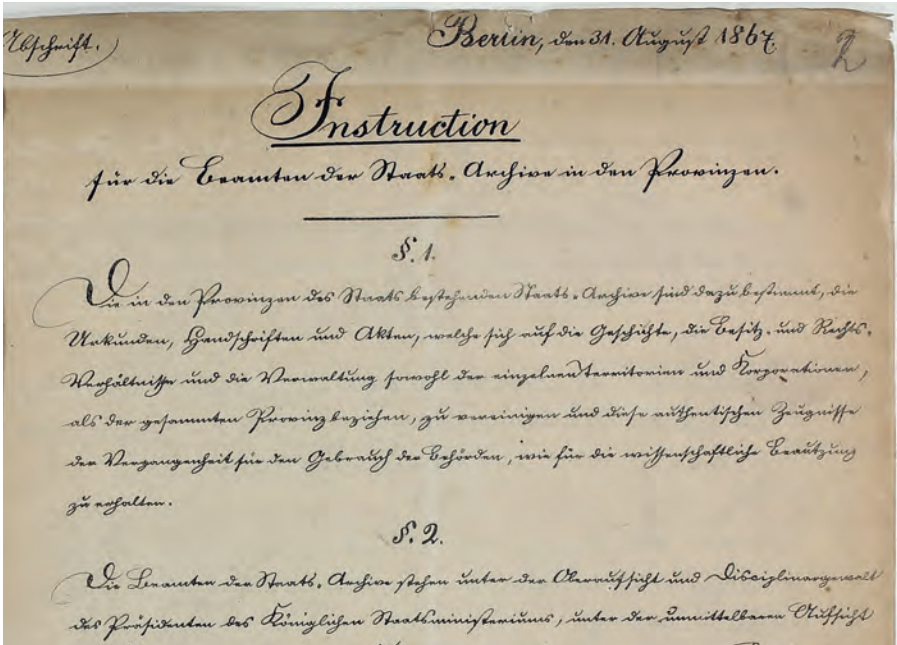 Abschrift.
Berlin, den 31. August 1867.
2
Instruction
für die Beamten der Staats-Archive in den Provinzen.
§. 1.
Die in den Provinzen des Staats bestehenden Staats-Archive sind dazu bestimmt, die
Urkunden, Handschriften und Akten, welche sich auf die Geschichte, die Besitz- und Rechts-
Verhältnisse und die Verwaltung sowohl der einzelnen Territorien und Korporationen,
als der gesammten Provinz beziehen, zu vereinigen und diese authentischen Zeugnisse
der Vergangenheit für den Gebrauch der Behörden, wie für die wissenschaftliche Benutzung
zu erhalten.
§. 2.
Die Beamten der Staats-Archive stehen unter der Oberaufsicht und Disciplinargewalt
des Präsidenten des Königlichen Staatsministeriums, unter der unmittelbaren Aufsicht